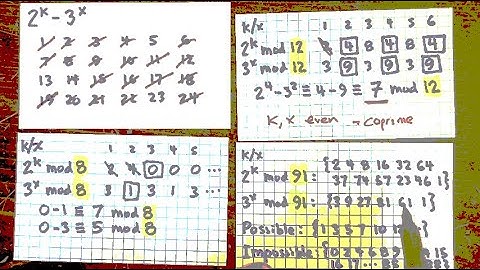 2^k - 3^x
1 2 3 4 5 6
7 8 9 10 11 12
13 14 15 16 17 18
19 20 21 22 23 24
k/x 1 2 3 4 5 6
2^k mod 12 2 4 8 4 8 4
3^x mod 12 3 9 3 9 3 9
2^4 - 3^2 ≡ 4 - 9 ≡ 7 mod 12
k, x even → coprime
k/x 1 2 3 4 5
2^k mod 8 2 4 0 0 0 ...
3^x mod 8 3 1 3 1 3 ...
0 - 1 ≡ 7 mod 8
0 - 3 ≡ 5 mod 8
k/x
2^k mod 91: {2 4 8 16 32 64
37 74 57 23 46 1}
3^x mod 91: {3 9 27 81 61 1}
Possible: {1 3 5 7 10
Impossible: {0 2 4 6 8 9 15
16 17 ... 88